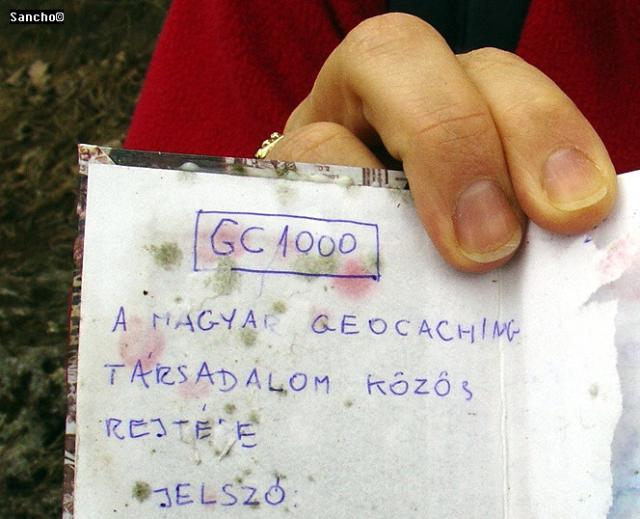 Sancho©
GC1000
A MAGYAR GEOCACHING
TÁRSADALOM KÖZÖS
REJTÉKE
JELSZÓ: